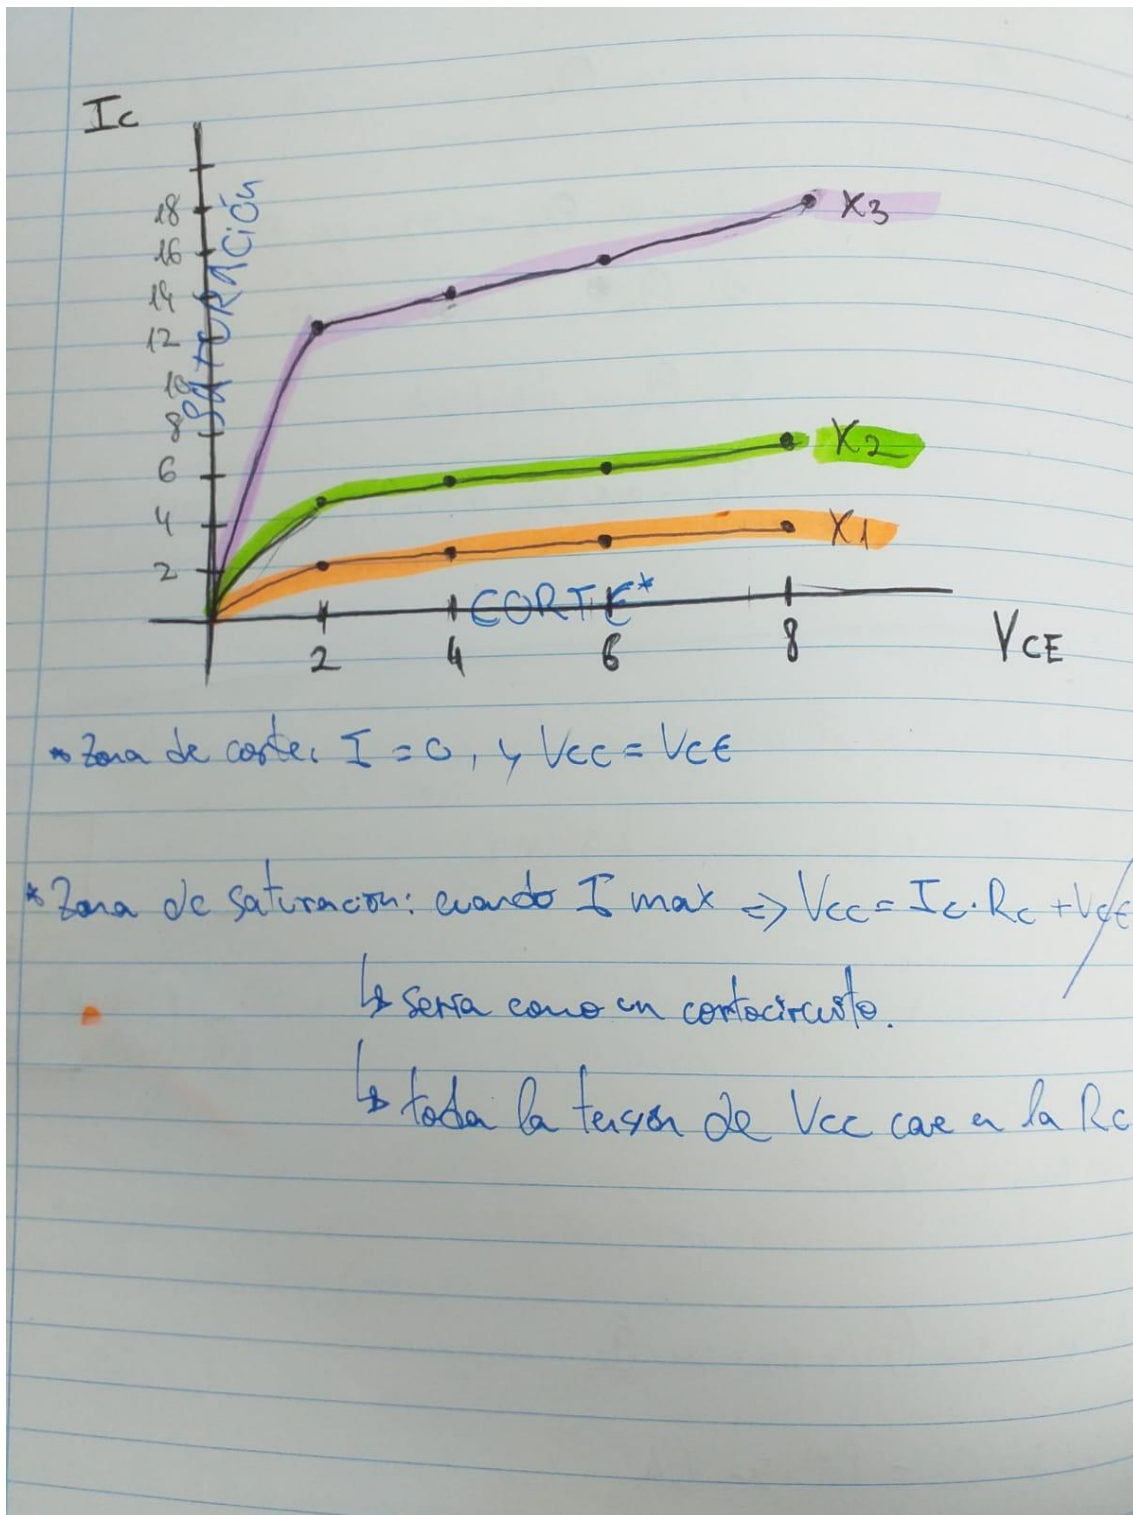 Ic
18
16
14
12
10
8
6
4
2
SATURACIÓN
X3
X2
X1
CORTE*
2 4 6 8
VCE
* Zona de corte: I = 0, y Vcc = VCE
* Zona de saturación: cuando I max => Vcc = Ic · Rc + VCE
↳ sería como un cortocircuito.
↳ toda la tensión de Vcc cae en la Rc